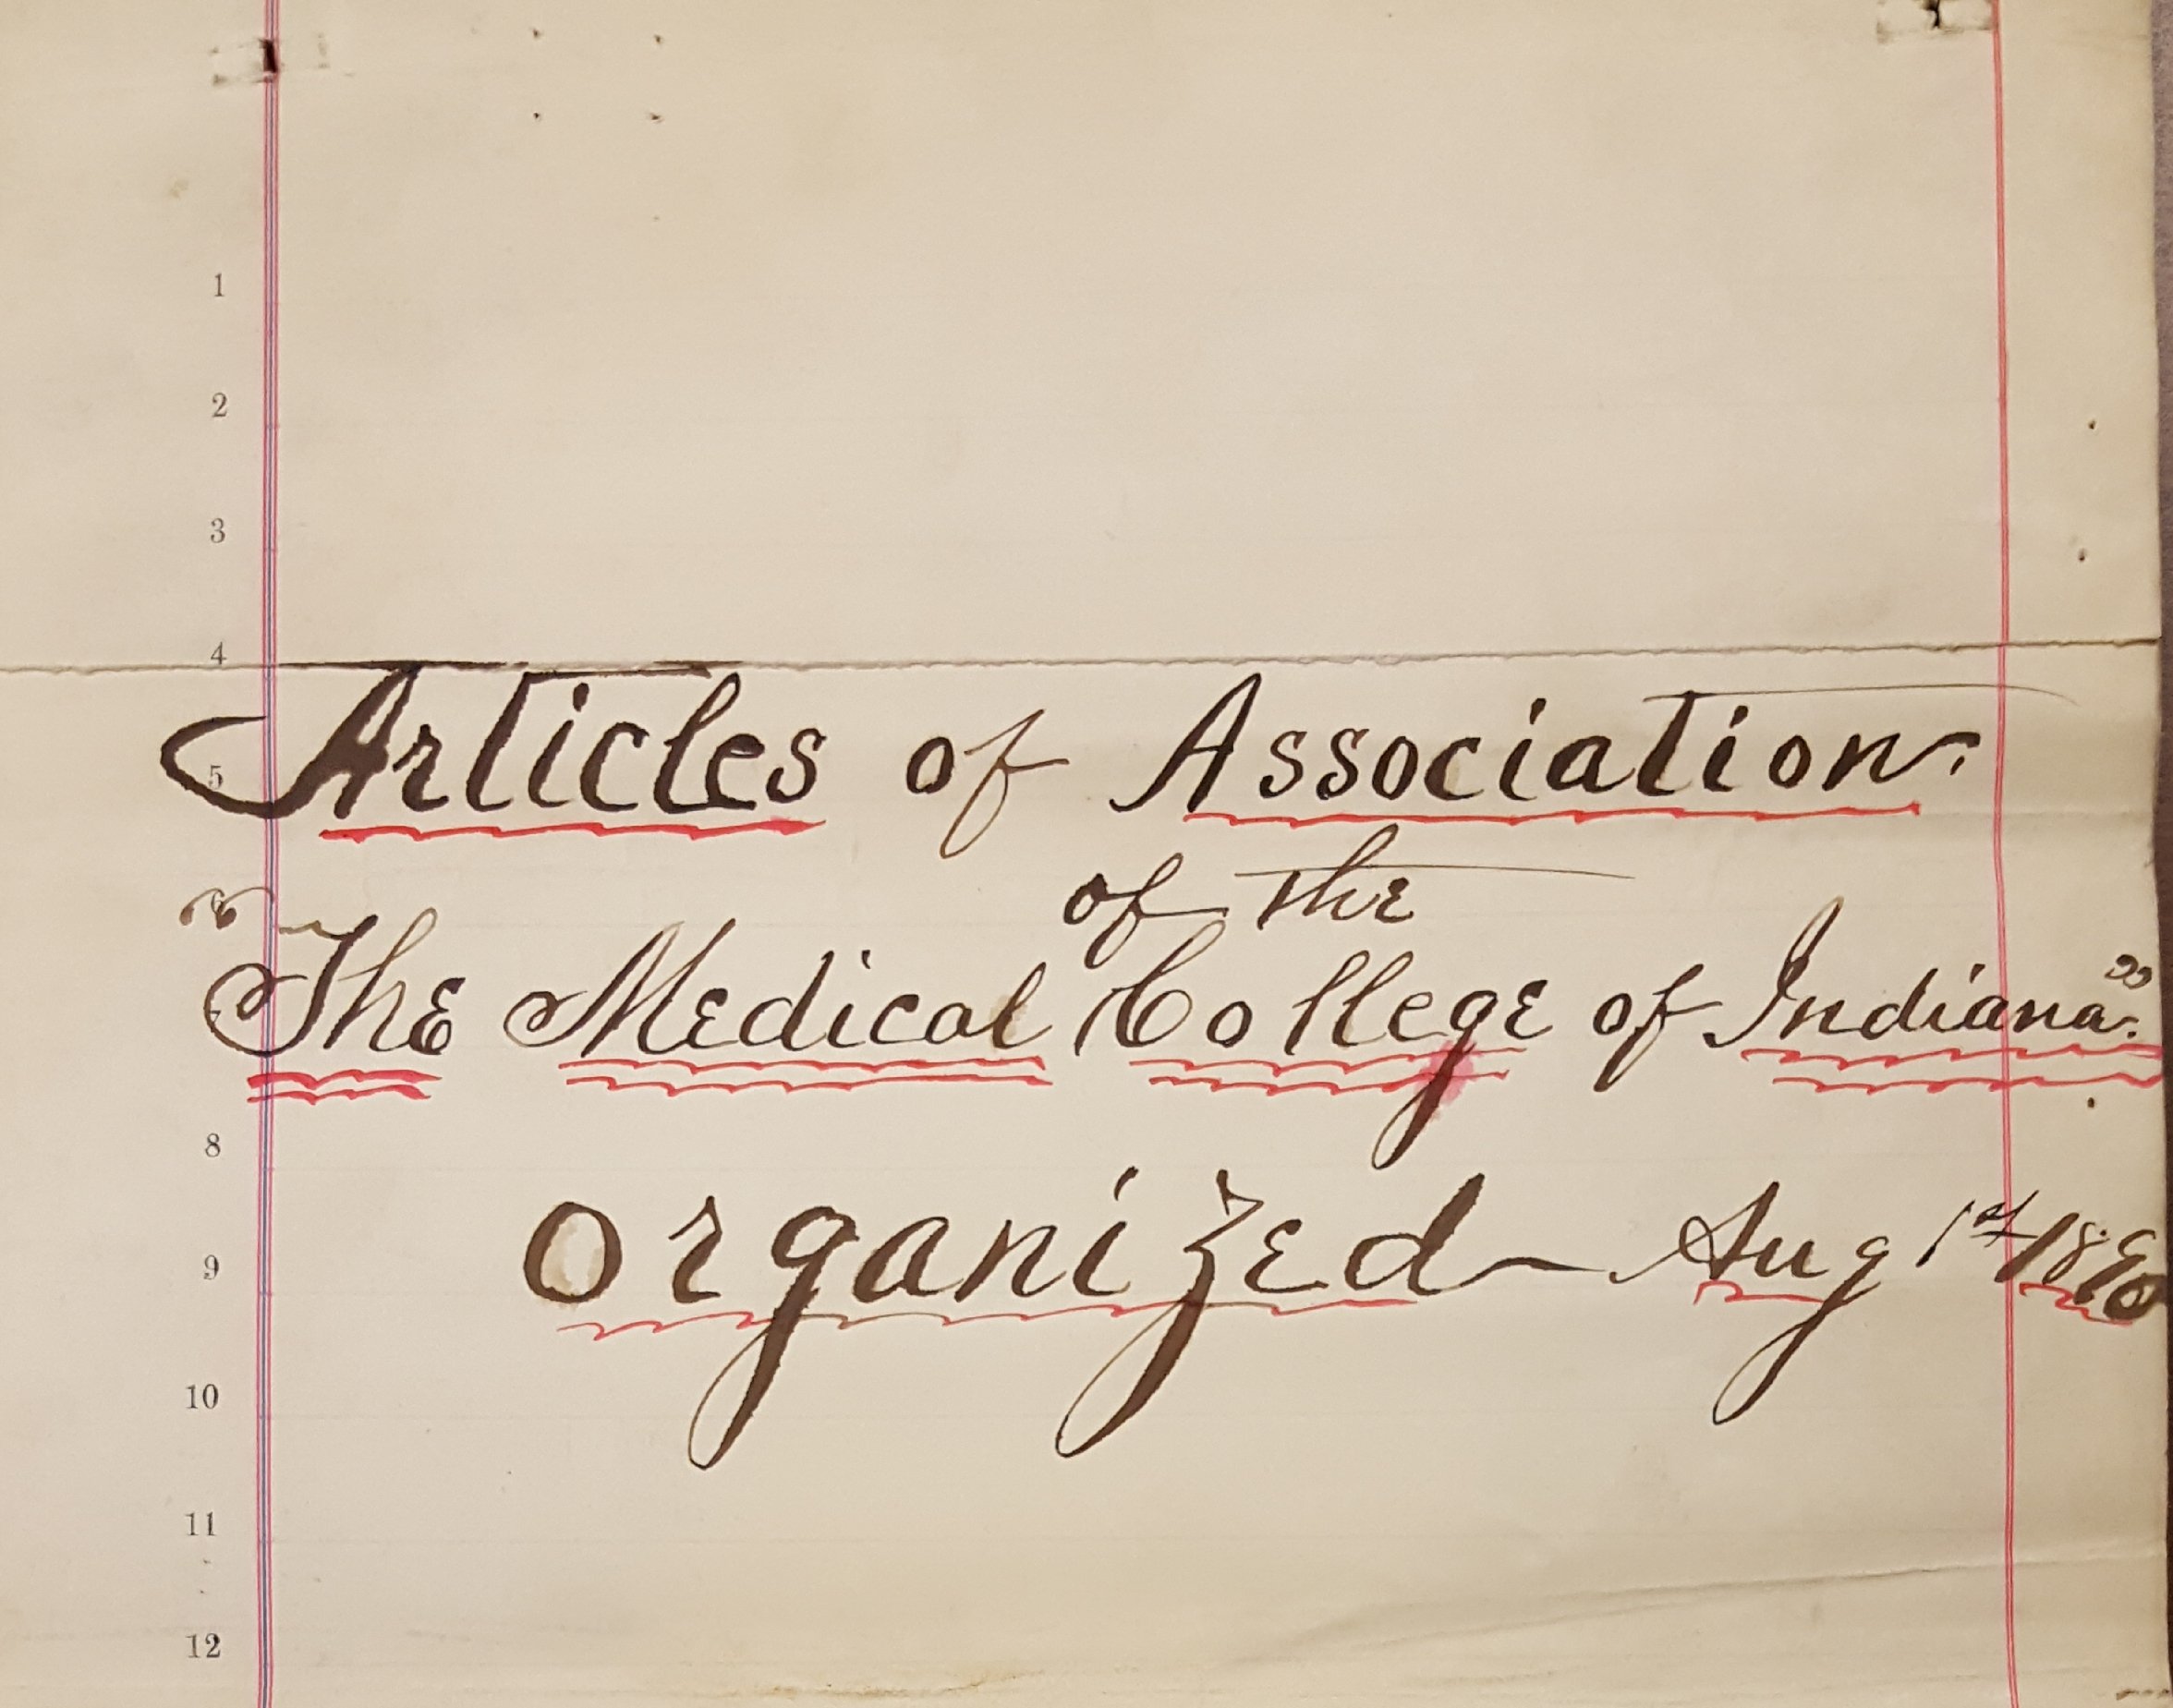 1
2
3
4
Articles of Association.
5
of the
6
"The Medical College of Indiana."
8
organized Aug 1st
9
10
11
12